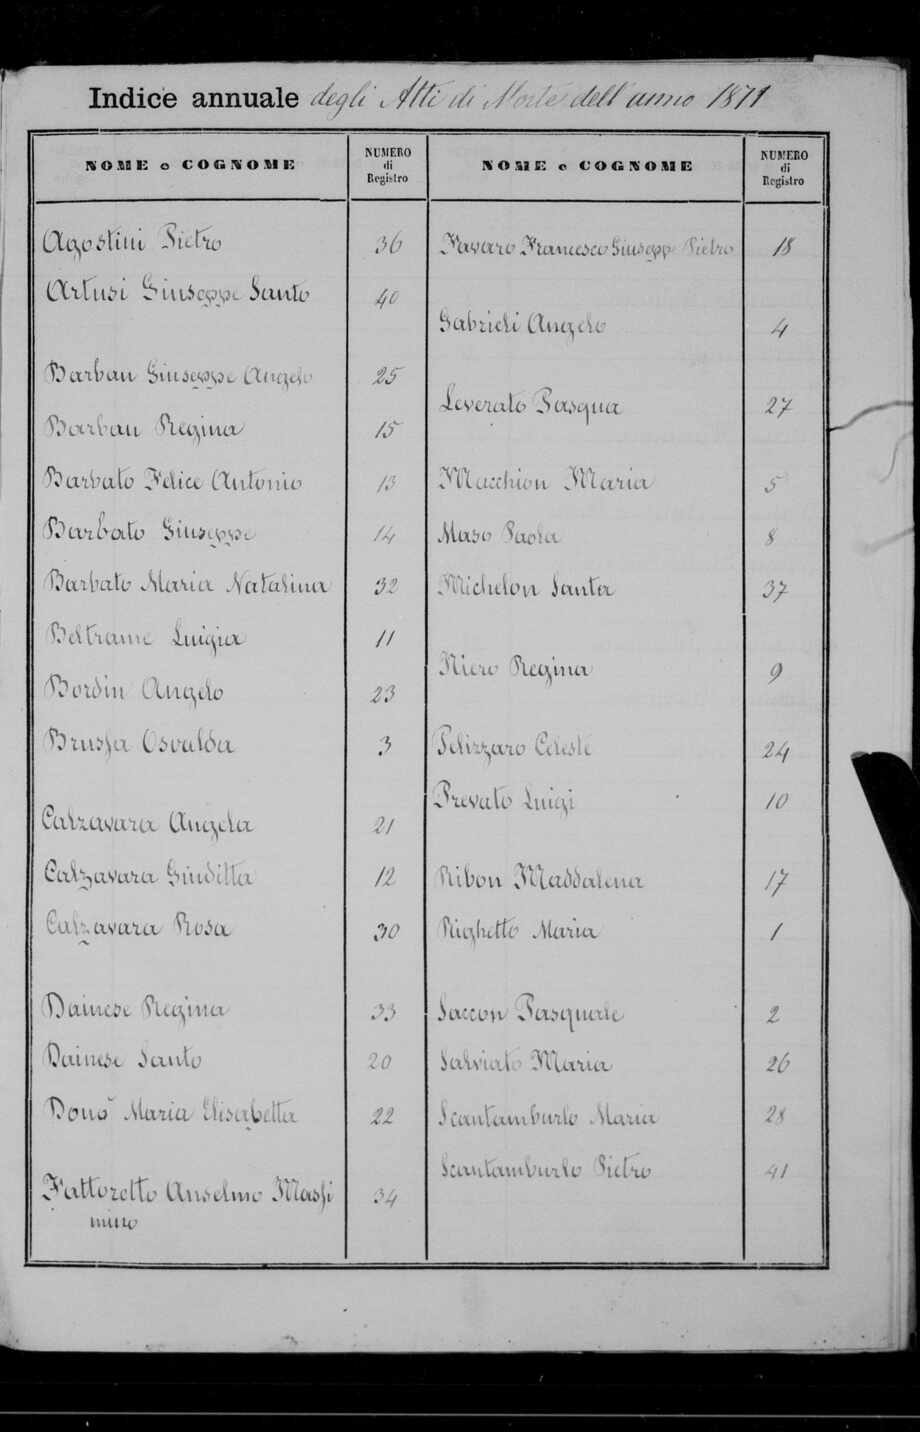 Indice annuale degli Atti di Morte dell'anno 1871
NOME e COGNOME
NUMERO
di
Registro
NOME e COGNOME
NUMERO
di
Registro
Agostini Pietro 36
Artusi Giuseppe Santo 40
Barban Giuseppe Angelo 25
Barban Regina 15
Barbato Felice Antonio 13
Barbato Giuseppe 14
Barbato Maria Natalina 32
Beltrame Luigia 11
Bordin Angelo 23
Brussa Osvalda 3
Calzavara Angela 21
Calzavara Giuditta 12
Calzavara Rosa 30
Dainese Regina 33
Dainese Santo 20
Donò Maria Elisabetta 22
Fattoretto Anselmo Massi 34
mino
Favaro Francesco Giuseppe Pietro 18
Gabrieli Angelo 4
Leverato Pasqua 27
Macchion Maria 5
Maso Paola 8
Michelon Santa 37
Niero Regina 9
Pelizzaro Celeste 24
Prevato Luigi 10
Ribon Maddalena 17
Righetto Maria 1
Saccon Pasquale 2
Salviato Maria 26
Scantamburlo Maria 28
Scantamburlo Pietro 41